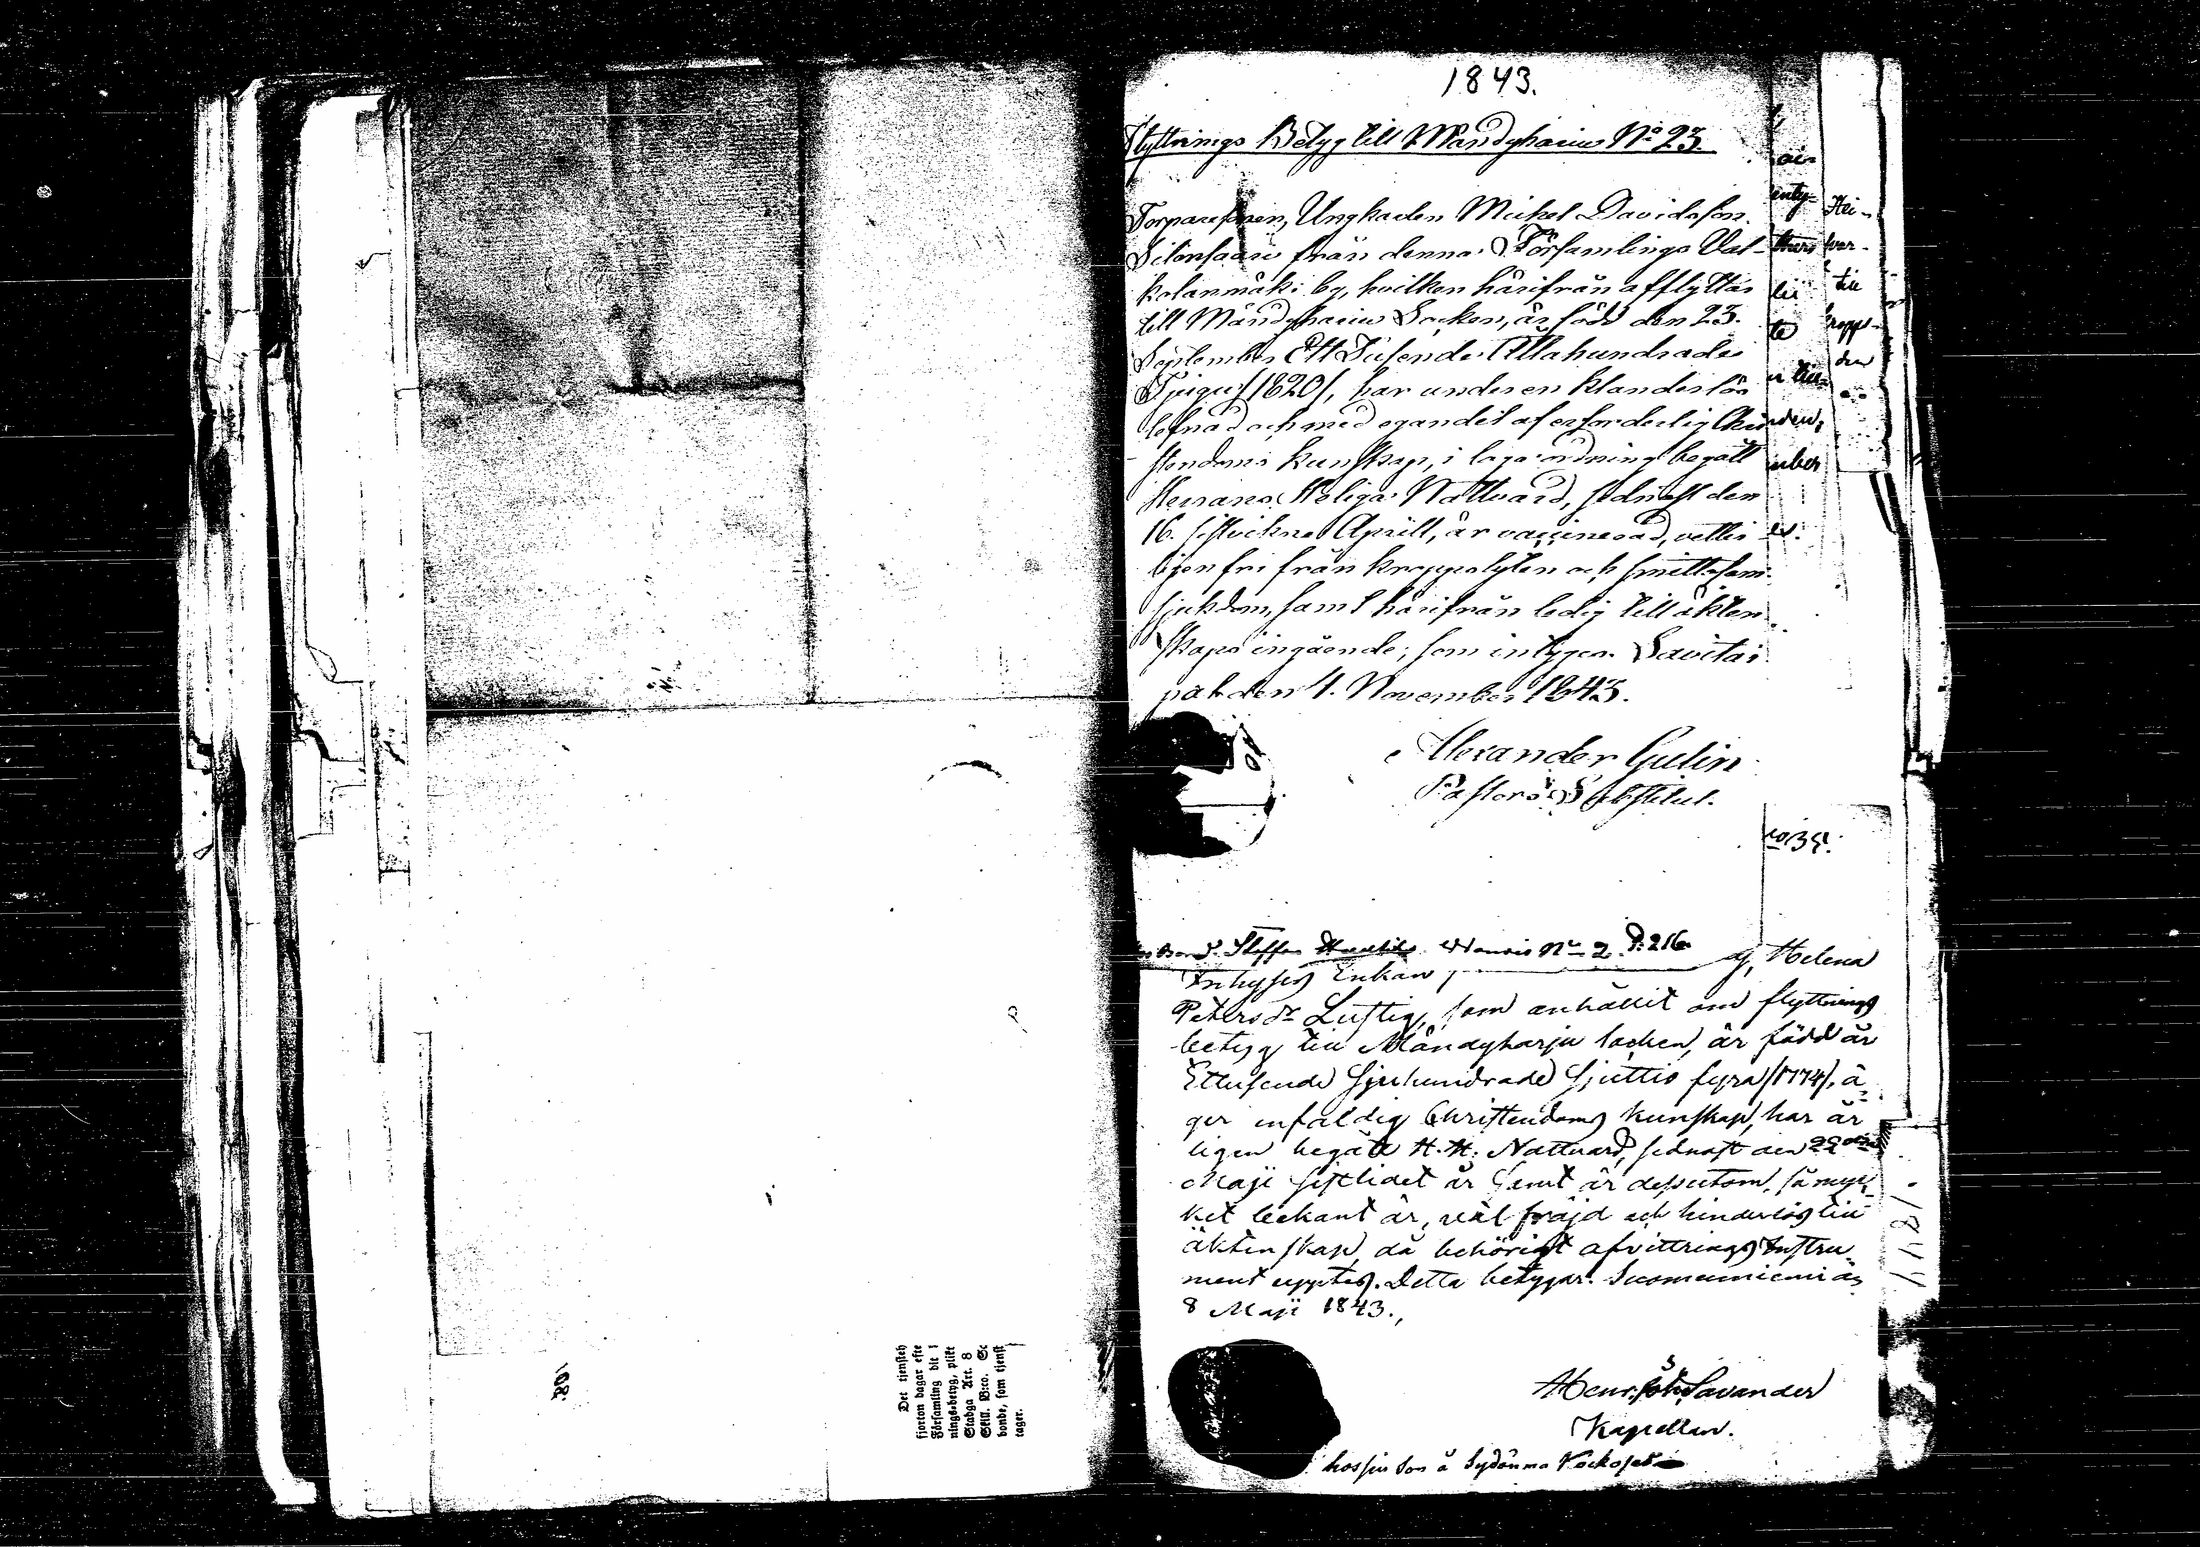 1843.
Flyttnings Betyg till Mändyharju No 23.
Torparesonen, Ungkarlen Mickel Davidsson
från denna Församlings Val-
kolanmäki by, hvilken härifrån afflyttar
till Mändyharju Socken, är född den 23.
September Ett Tusende Åttahundrade
Tjugu /1820/, har under en klanderlös
lefnad och med egandet af erforderlig Chri-
stendoms kunskap, i laga ordning begått
Herrans Heliga Nattvard, sednast den
16. sistvikne Aprill, är vaccinerad, vetter-
ligen fri från kroppslyten och smittosam
sjukdom, samt härifrån ledig till äkten-
skaps ingående; som intygar. Savitai-
pal den 4. November 1843.
Alexander Gulin
Pastors Substitut.
No 35.
Steffan No 2. P. 216
Inhyses Enkan, Helena
Petersdr Lustig, som anhållit om flyttnings
betyg till Mändyharju socken, är född år
Ettusende Sjuhundrade Sjuttio fyra /1774/, ä-
ger enfaldig Christendoms kunskap, har år-
ligen begått H. H. Nattvard, sednast den
Maji sistlidet år samt är dessutom, så myc-
ket bekant är, väl fräjd och hinderlös till
äktenskap, då behörigt afvittrings Instru-
ment upptes. Detta betygar. Suomenniemi
8 Maji 1843.,
Henr. Joh. Savander
Kapellan.
hos sin son å
1844
108.
Det tjensteh
fjorton dagar efte
Församling blif i
ningsbetyg, plikt
Stadga Art. 8
Skill. B:co. Se
bonde, som tjenst
tager.